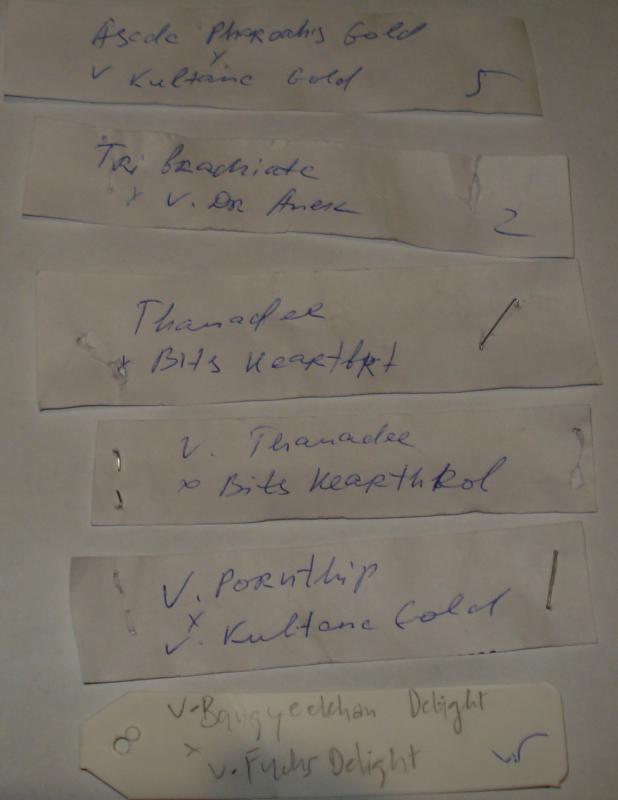 Ascda Pharoahs Gold
x
v Kultana Gold 5
Tri brachiate
x V. Dr Anek 2
Thanadee
x Bits Heartbrt
V. Thanadee
x Bits Hearthrol
V. Pornthip
x
v. Kultana Gold
V-Bangyeekhan Delight
x
v. Fuchs Delight